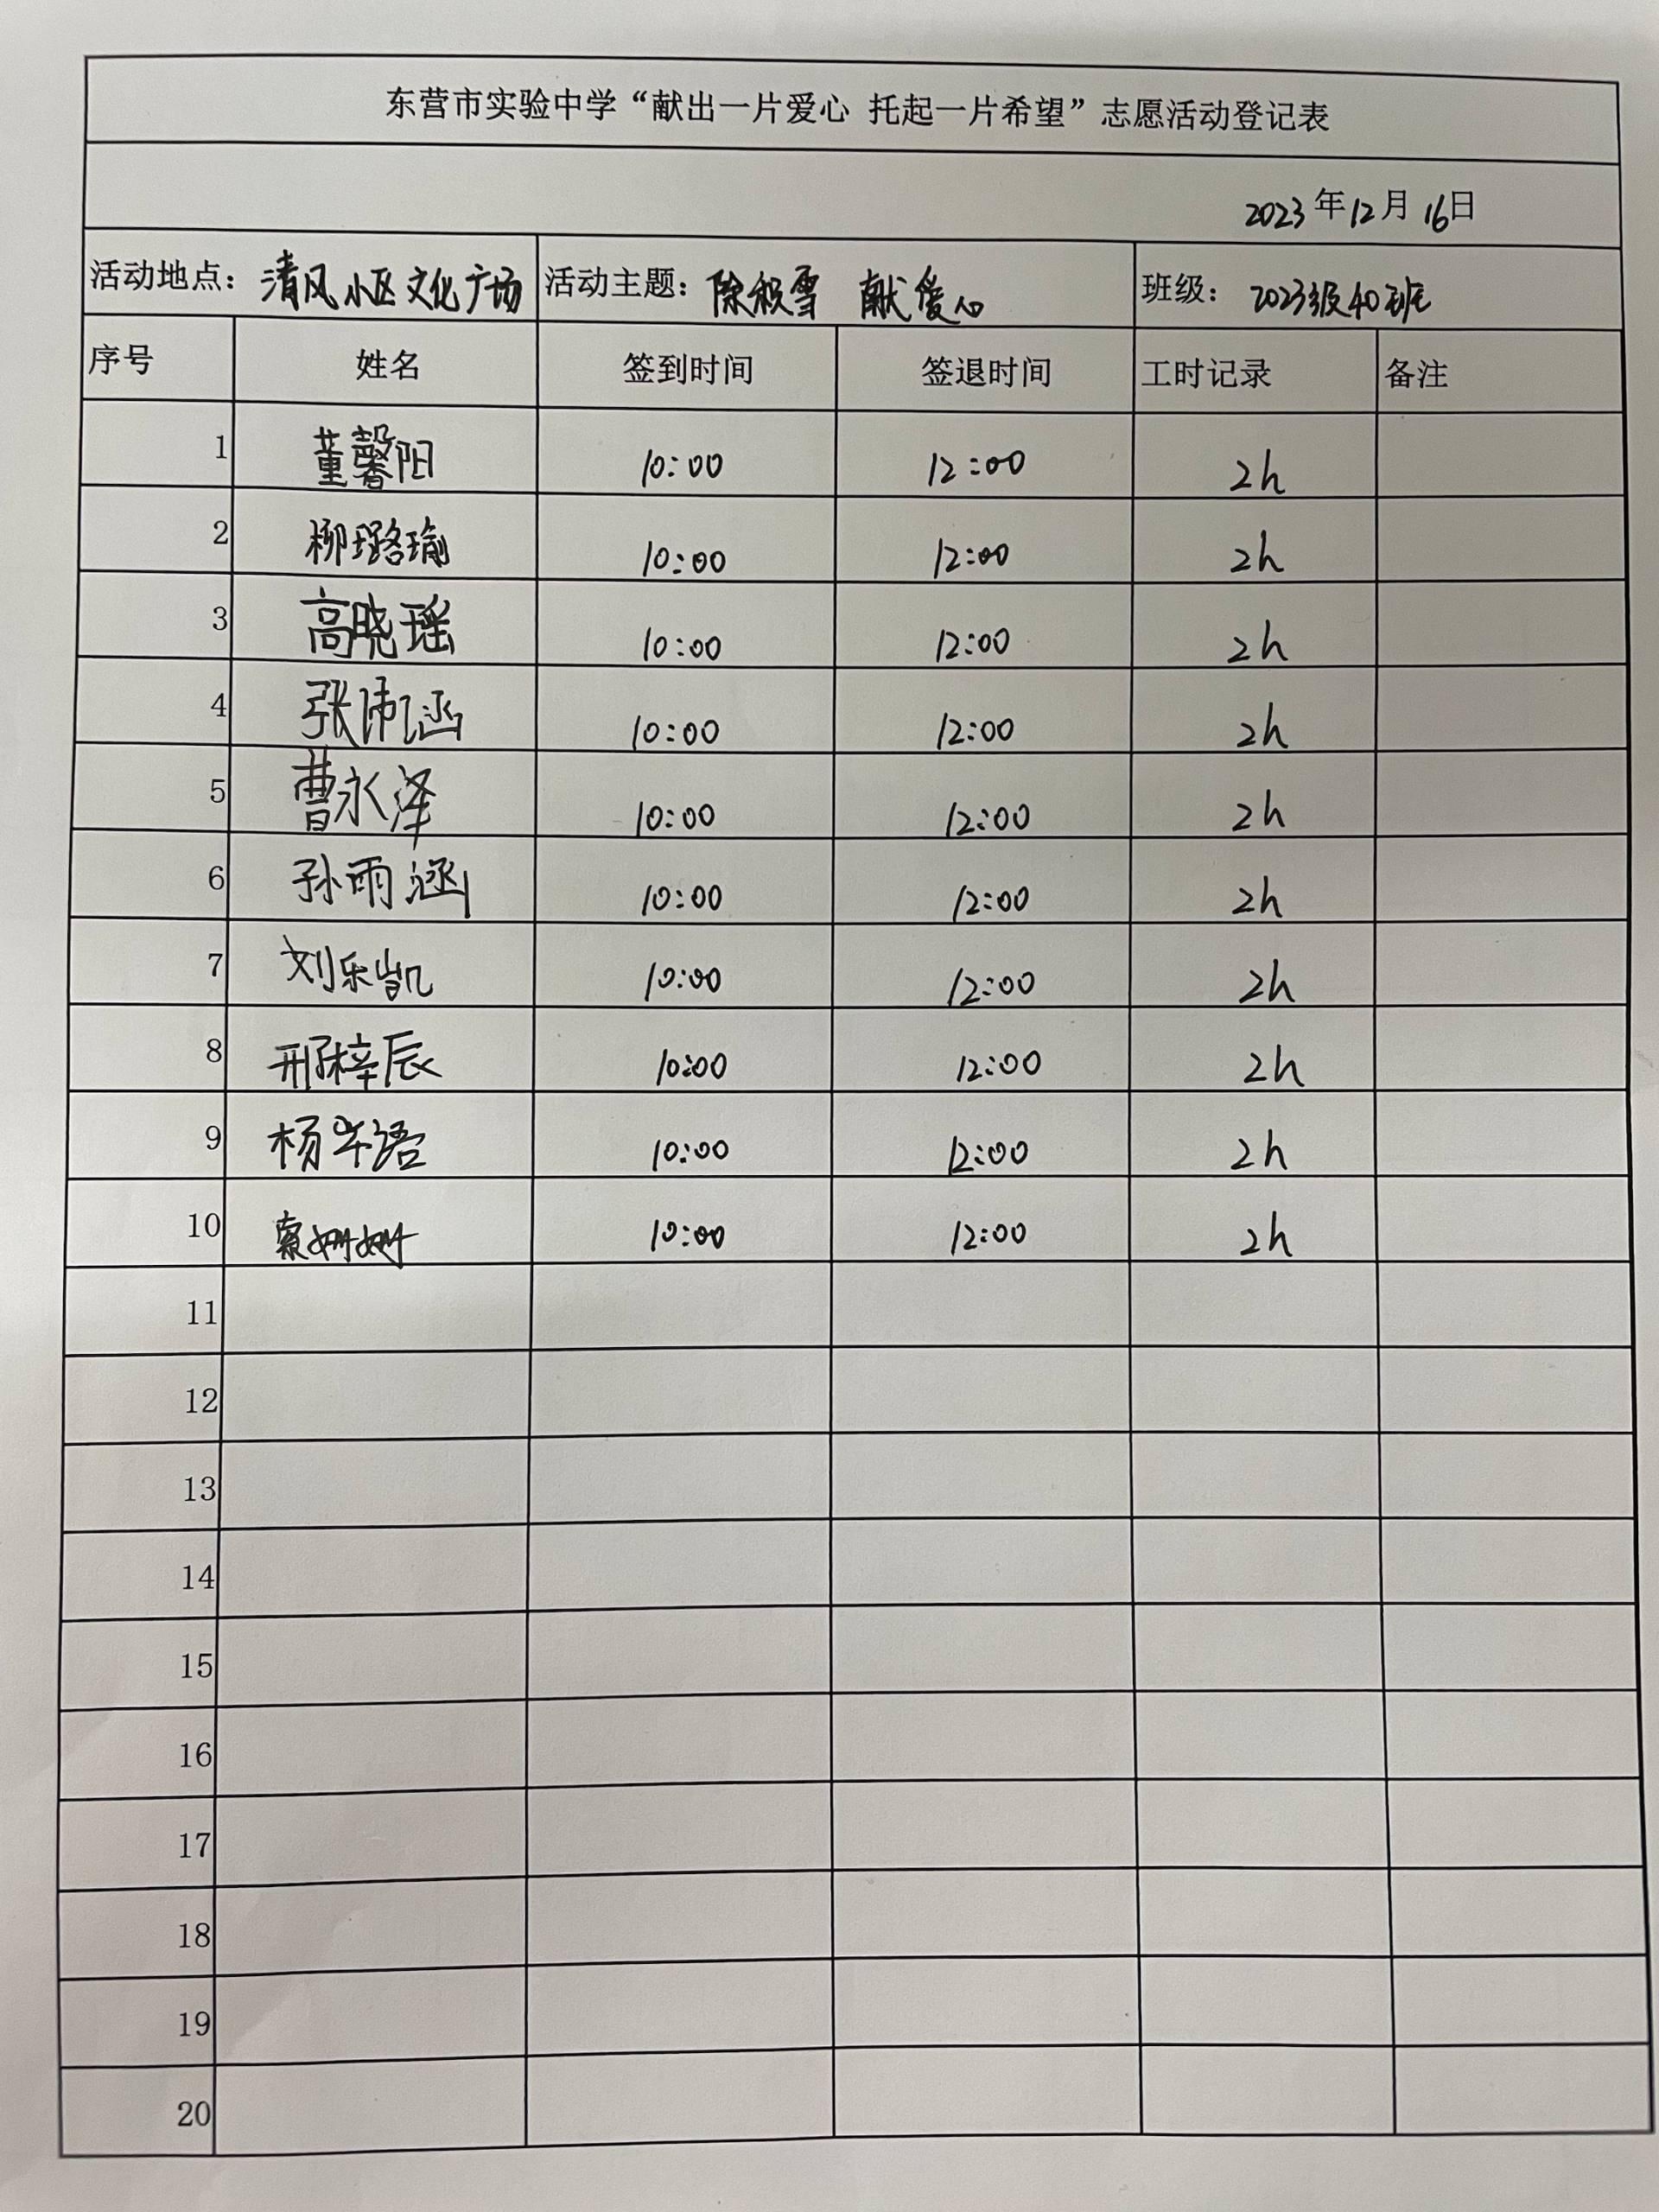 东营市实验中学“献出一片爱心 托起一片希望”志愿活动登记表
2023年12月16日
活动地点：清风小区文化广场 活动主题：除积雪 献爱心 班级：2023级40班
序号 姓名 签到时间 签退时间 工时记录 备注
1 董馨阳 10:00 12:00 2h
2 柳璐瑜 10:00 12:00 2h
3 高晓瑶 10:00 12:00 2h
4 张沛涵 10:00 12:00 2h
5 曹永泽 10:00 12:00 2h
6 孙雨涵 10:00 12:00 2h
7 刘乐凯 10:00 12:00 2h
8 邢梓辰 10:00 12:00 2h
9 10:00 12:00 2h
10 索姗姗 10:00 12:00 2h
11
12
13
14
15
16
17
18
19
20